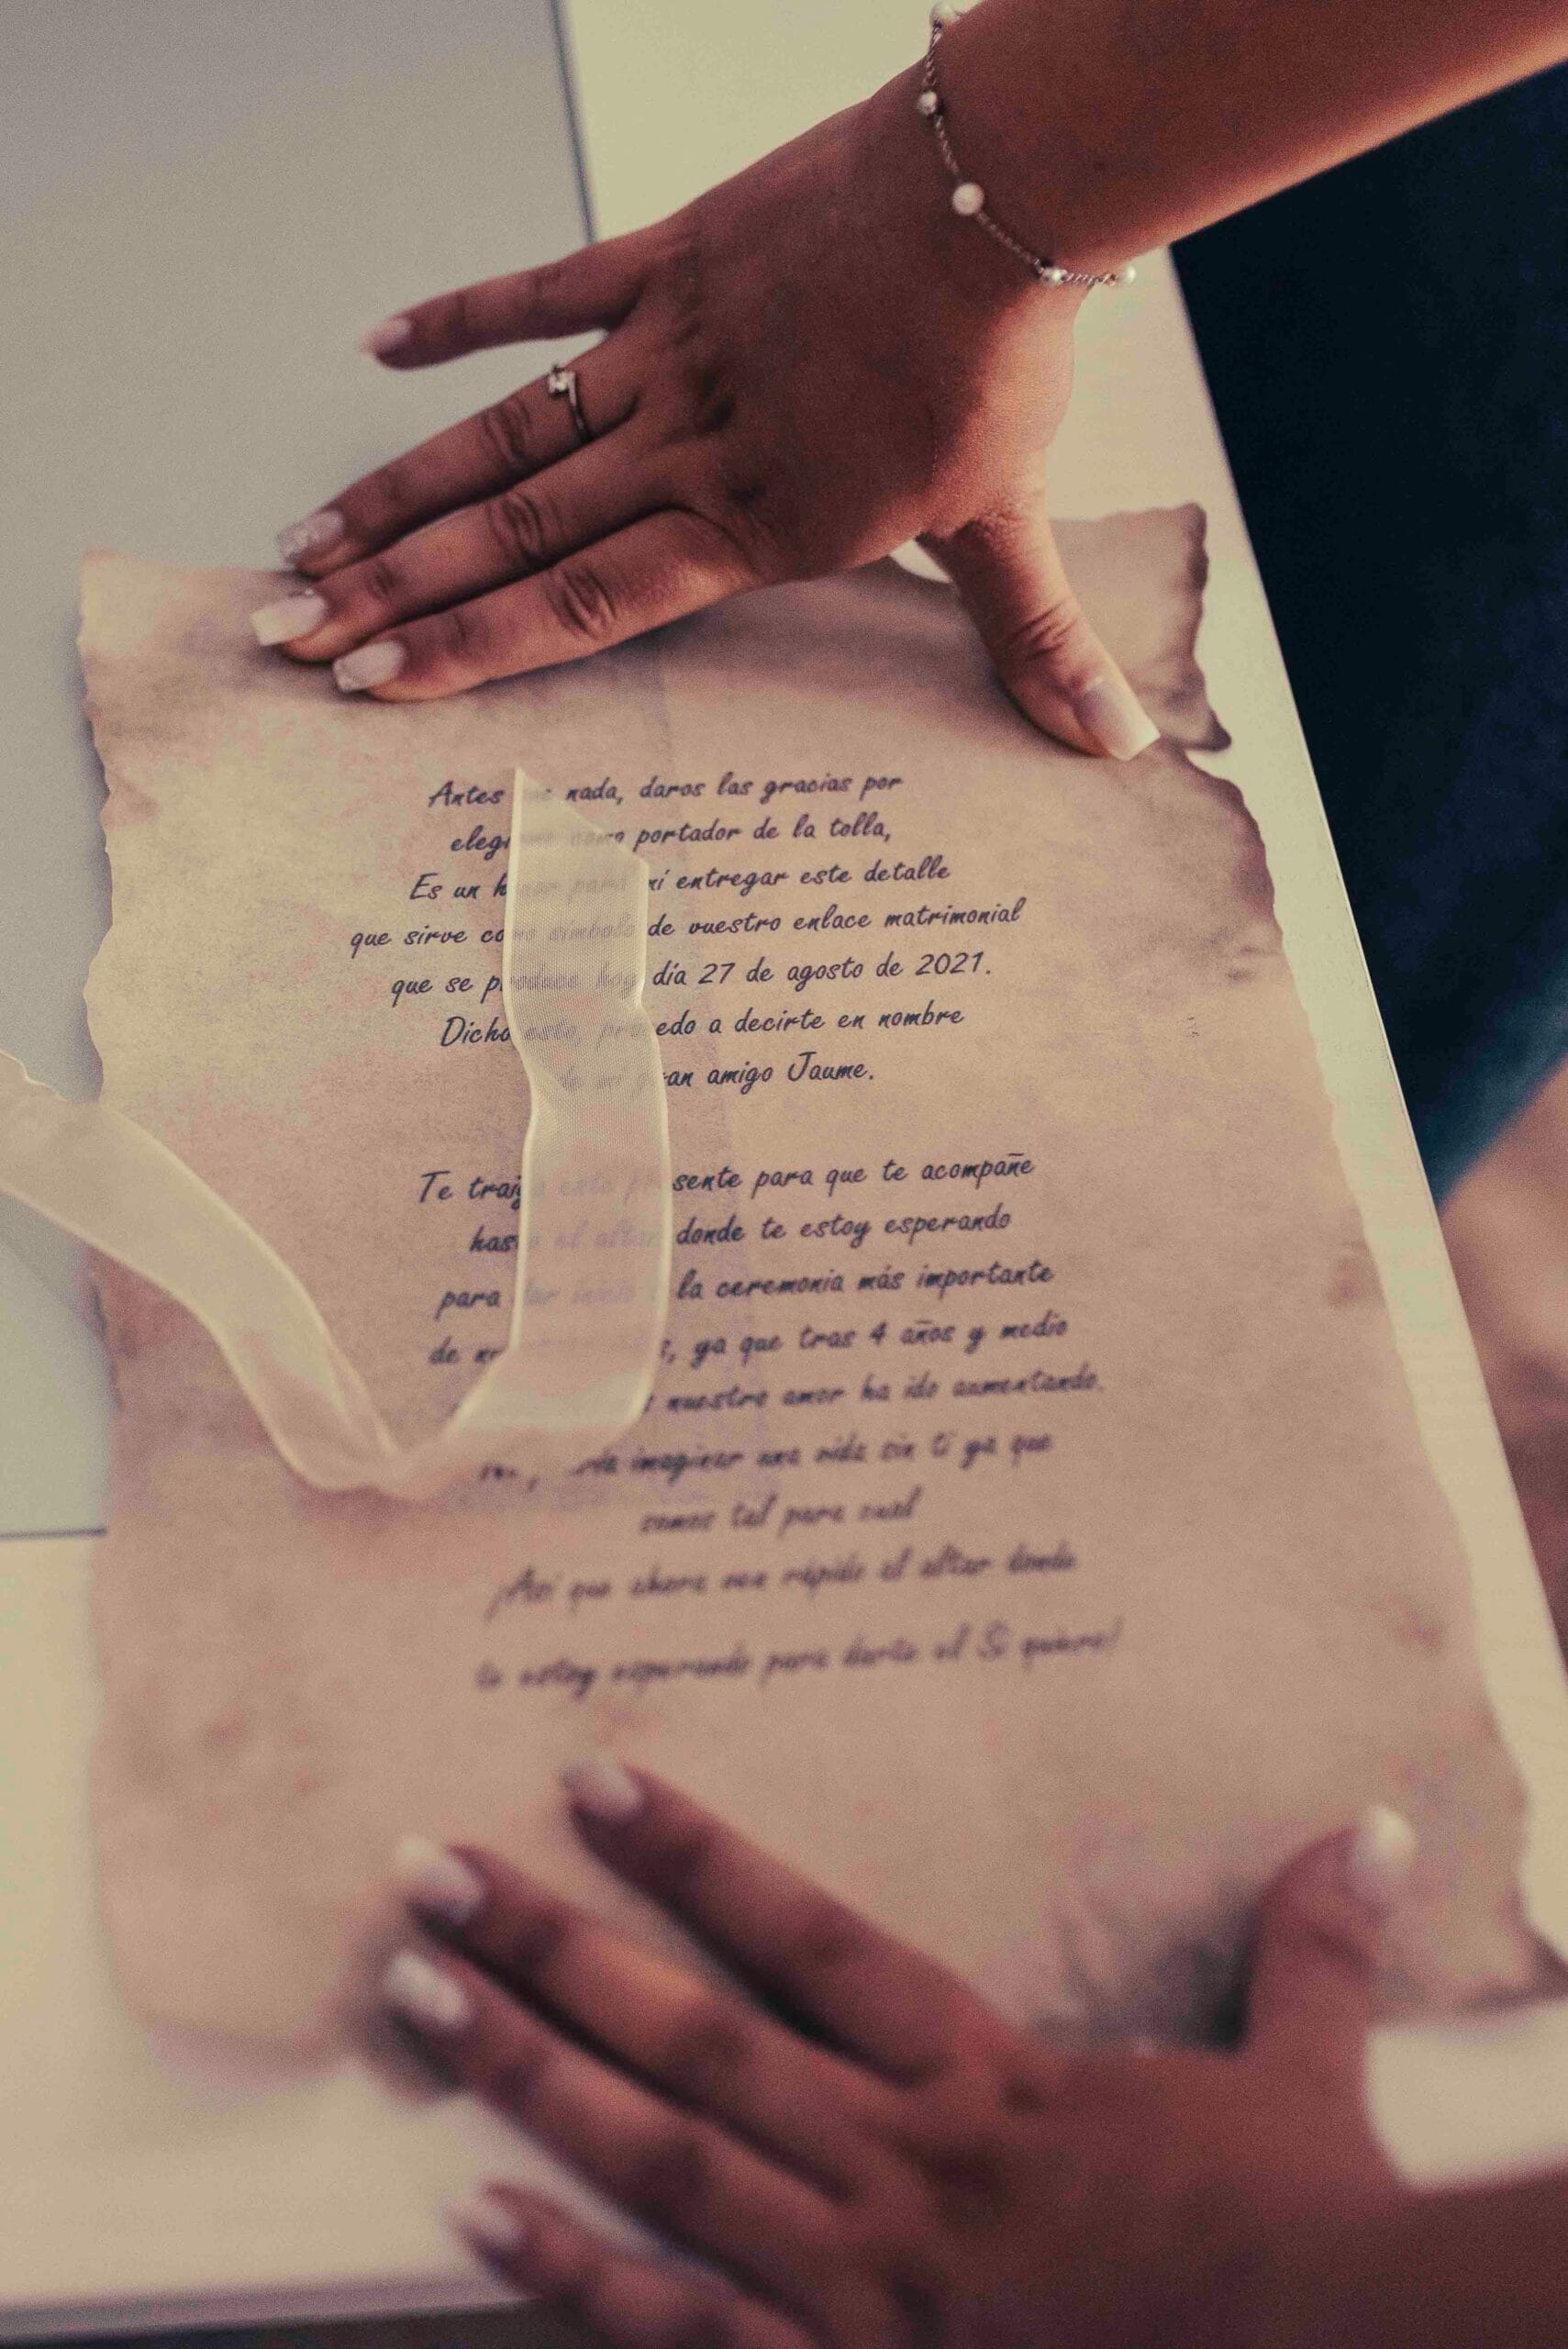 Antes de nada, daros las gracias por
elegirme como portador de la tolla,
Es un honor para mí entregar este detalle
que sirve como símbolo de vuestro enlace matrimonial
que se produce hoy día 27 de agosto de 2021.
Dicho esto, procedo a decirte en nombre
de mi gran amigo Jaume.
Te traigo este presente para que te acompañe
hasta el altar donde te estoy esperando
para dar inicio a la ceremonia más importante
de ya que tras 4 años y medio
nuestro amor ha ido aumentando.
imaginar una vida sin ti ya que
somos tal para cual
¡Así que ahora ven rápido al altar donde
te estoy esperando para darte el Sí quiero!